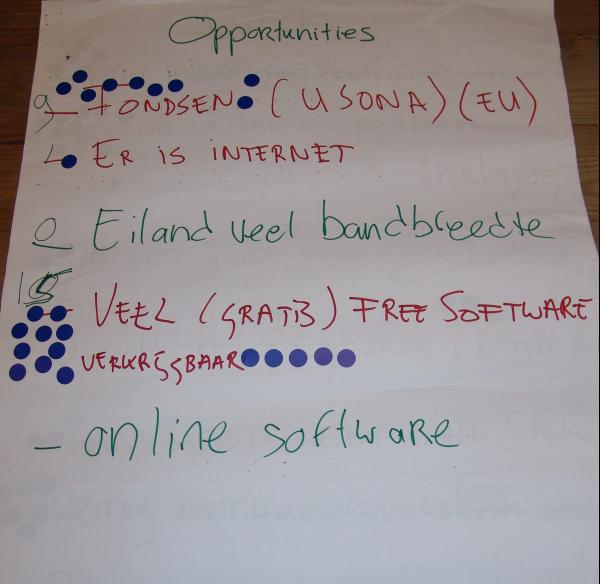 Opportunities
9 - FONDSEN (USONA) (EU)
1 - ER IS INTERNET
0 - Eiland veel bandbreedte
15 - VEEL (GRATIS) FREE SOFTWARE
VERKRIJGBAAR
- online software